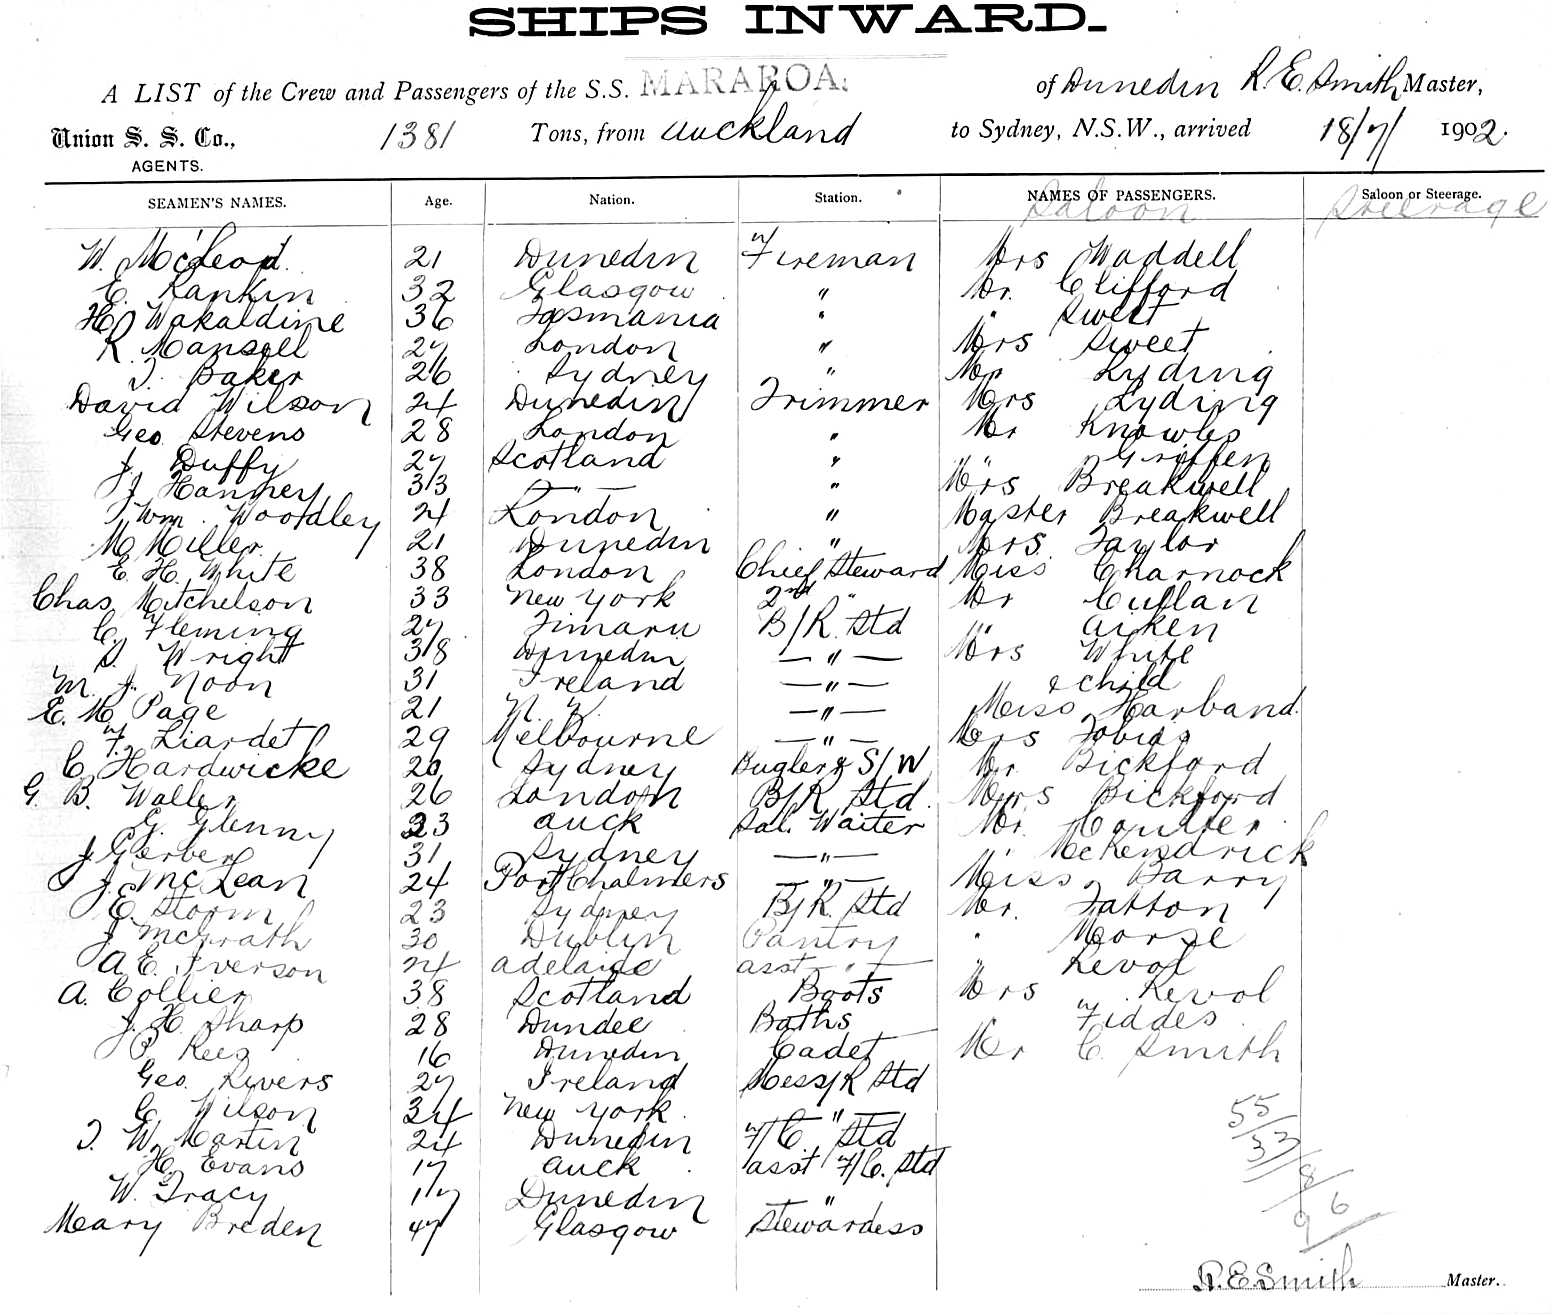 SHIPS INWARD.
A LIST of the Crew and Passengers of the S.S. MARAROA. of Dunedin R. E. Smith Master,
Union S. S. Co., 1381 Tons, from Auckland to Sydney, N.S.W., arrived 18/7/ 1902.
AGENTS.
SEAMEN'S NAMES. Age. Nation. Station. NAMES OF PASSENGERS. Saloon or Steerage.
Saloon Steerage
W. McLeod. 21 Dunedin Fireman Mrs Waddell
E. Rankin 32 Glasgow " Mr. Clifford
H. Wakaldine 36 Tasmania " " Sweet
R. Mansell 27 London " Mrs Sweet
T. Baker 26 Sydney " Mr Lyding
David Wilson 24 Dunedin Trimmer Mrs Lyding
Geo Stevens 28 London " Mr Knowles
J. Duffy 27 Scotland " " Griffen
J. Hanney 33 — " — " Mrs Breakwell
Wm. Woodley 24 London " Master Breakwell
M. Miller 21 Dunedin " Mrs. Taylor
E. H. White 38 London Chief Steward Miss Charnock
Chas Mitchelson 33 New York 2nd " Mr Cullan
C. Fleming 27 Timaru B/R. Std " Aitken
D. Wright 38 Dunedin — " — Mrs White
M. J. Noon 31 Ireland — " — & child
E. M. Page 21 N. Z. — " — Miss Harband.
F. Liardet 29 Melbourne — " — Mrs Tobias
C. Hardwicke 20 Sydney Bugler & S/W Mr. Bickford
G. B. Waller 26 London B/R Std. Mrs Bickford
G. Glenny 23 Auck Sal. Waiter Mr. Coulter
J Gerber 31 Sydney — " — " McKendrick
J. McLean 24 Port Chalmers — " — Miss Barry
E. Storm 23 Sydney B/R. Std Mr. Tatton
J McGrath 30 Dublin Pantry " Morse
A. E. Iverson 24 Adelaide asst — " — " Revol
A. Collier 38 Scotland Boots Mrs Revol
J. H. Sharp 28 Dundee Baths " Fiddes
P. Rees 16 Dunedin Cadet Mr C. Smith
Geo. Rivers 27 Ireland Mess/R Std
C. Wilson 34 New York. "
T. W. Martin 24 Dunedin F/C. Std
H. Evans 17 Auck asst F/C. Std
W. Tracy 17 Dunedin "
Mary Breden 47 Glasgow Stewardess
55/
33/
8/
96
R. E. Smith Master.